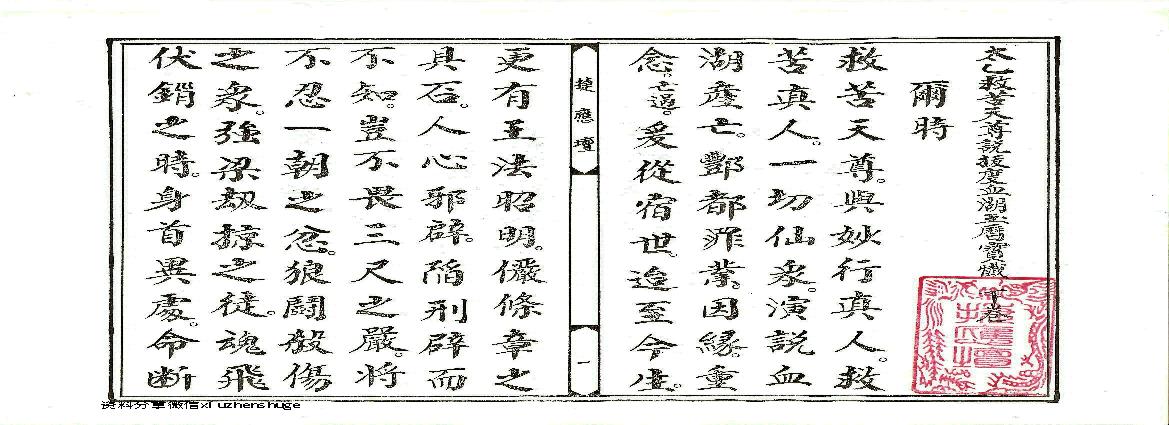 太乙救苦天尊説拔度血湖玉曆寳懺中卷
爾時
救苦天尊。與妙行真人。救
苦真人。一切仙衆。演説血
湖產亡。酆都罪業。因緣重
念。亡過。爰從宿世。迨至今生。
捷應壇
一
更有王法昭明。儼條章之
具石。人心邪辟。陷刑辟而
不知。豈不畏三尺之嚴。將
不忍一朝之忿。狼鬪殺傷
之衆。強梁刼掠之徒。魂飛
伏銷之時。身首異處。命斷
资料分享微信xiuzhenshuge